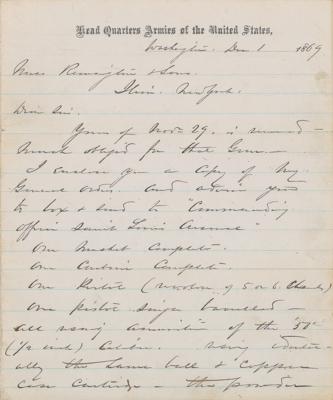 Head Quarters Armies of the United States,
Washington. Dec 1 1869
Messrs Remington & Sons.
Ilion. New York.
Dear Sir.
Yours of Nov. 29. is received
Much obliged for the
I enclose you a copy of my
General orders and advise you
to box & send to "Commanding
officer Saint Louis Arsenal"
One Musket Complete.
One Carbine Complete.
One Pistol (revolver of 5 or 6 Chambers)
One pistol single barrelled
all using ammunition of the "50"
(½ inch) Calibre. using
ally the same ball & copper
case cartridge - the powder